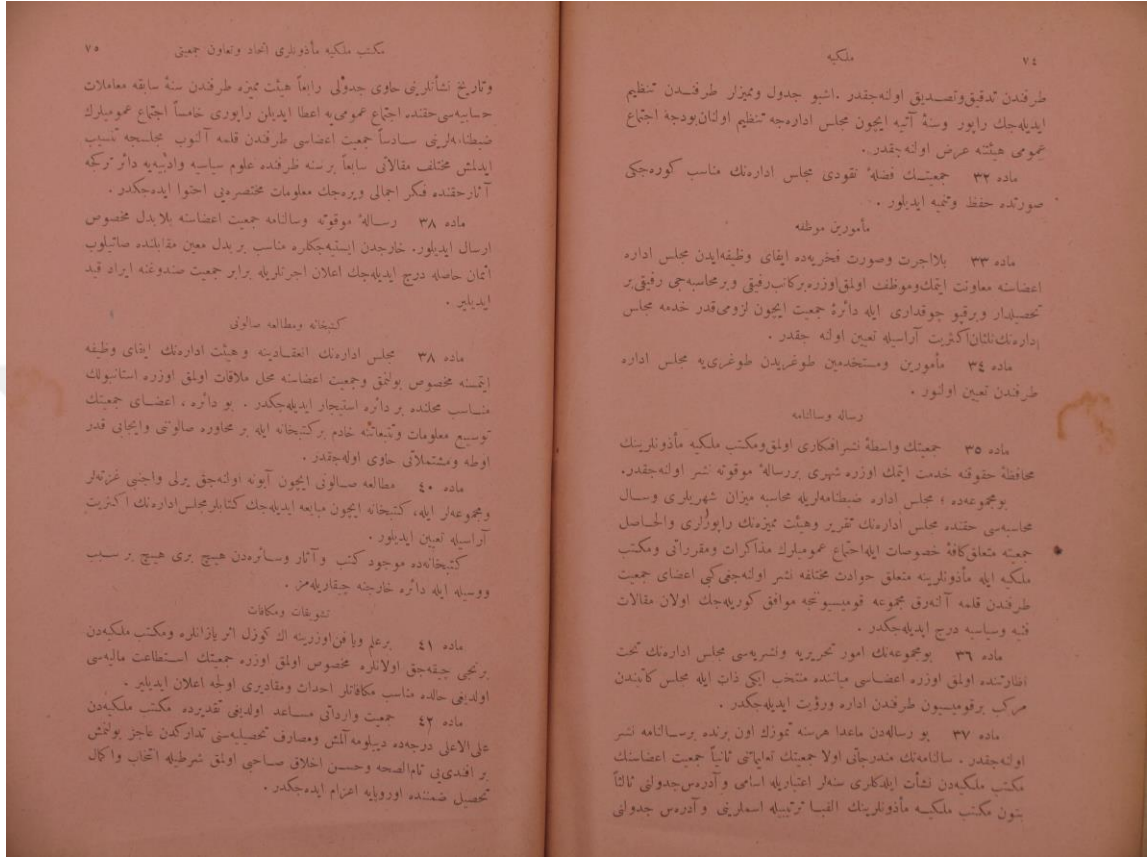 ٧٤
ملكيه
طرفندن تدقيق وتصديق اولنه‌جقدر. اشبو جدول ومميزلر طرفندن تنظيم
ايديله‌جك راپور وسنهٔ آتيه ايچون مجلس اداره‌جه تنظيم اولنان بودجه اجتماع
عمومى هيئتنه عرض اولنه‌جقدر.
ماده ٣٢ جمعيتك فضلهٔ نقودى مجلس اداره‌نك مناسب كوره‌جكى
صورتده حفظ وتنميه ايديلور.
مأمورين موظفه
ماده ٣٣ بلااجرت وصورت فخريه‌ده ايفاى وظيفه‌ايدن مجلس اداره
اعضاسنه معاونت ايتمك وموظف اولمق اوزره بركاتب رفيقى وبرمحاسبه‌جى رفيقى بر
تحصيلدار وبرقپو چوقدارى ايله دائرهٔ جمعيت ايچون لزومى قدر خدمه مجلس
اداره‌نك ثلثان اكثريت آراسيله تعيين اولنه جقدر.
ماده ٣٤ مأمورين ومستخدمين طوغريدن طوغرى‌يه مجلس اداره
طرفندن تعيين اولنور.
رساله وسالنامه
ماده ٣٥ جمعيتك واسطهٔ نشر افكارى اولمق ومكتب ملكيه مأذونلرينك
محافظهٔ حقوقنه خدمت ايتمك اوزره شهرى بررسالهٔ موقوته نشر اولنه‌جقدر.
بومجموعه‌ده ؛ مجلس اداره ضبطنامه‌لريله محاسبه ميزان شهريلرى وسال
محاسبه‌سى حقنده مجلس اداره‌نك تقرير وهيئت مميزه‌نك راپورلرى والحاصل
جمعيته متعلق كافهٔ خصوصات ايله اجتماع عموميلرك مذاكرات ومقرراتى ومكتب
ملكيه ايله مأذونلرينه متعلق حوادث مختلفه نشر اولنه‌جغى كبى اعضاى جمعيت
طرفندن قلمه آلنه‌رق مجموعه قوميسيونجه موافق كوريله‌جك اولان مقالات
فنيه وسياسيه درج ايديله‌جكدر.
ماده ٣٦ بومجموعه‌نك امور تحريريه ونشريه‌سى مجلس اداره‌نك تحت
انظارنده اولمق اوزره اعضاسى مياننده منتخب ايكى ذات ايله مجلس كاتبندن
مركب برقوميسيون طرفندن اداره ورؤيت ايديله‌جكدر.
ماده ٣٧ بو رساله‌دن ماعدا هرسنه تموزك اون برنده برسالنامه نشر
اولنه‌جقدر. سالنامه‌نك مندرجاتى اولا جمعيتك تعليماتنى ثانياً جمعيت اعضاسنك
مكتب ملكيه‌دن نشأت ايلدكلرى سنه‌لر اعتباريله اسامى وآدرس جدولنى ثالثاً
بتون مكتب ملكيه مأذونلرينك الفبا ترتيبيله اسملرينى وآدرس جدولنى
مكتب ملكيه مأذونلرى اتحاد وتعاون جمعيتى
٧٥
وتاريخ نشأتلرينى حاوى جدولى رابعاً هيئت مميزه طرفندن سنهٔ سابقه معاملات
حسابيه‌سى حقنده اجتماع عمومى‌يه اعطا ايديلن راپورى خامساً اجتماع عموميلرك
ضبطنامه‌لرينى سادساً جمعيت اعضاسى طرفندن قلمه آلنوب مجلسجه تنسيب
ايدلمش مختلف مقالاتى سابعاً برسنه ظرفنده علوم سياسيه وادبيه‌يه دائر تركجه
آثار حقنده فكر اجمالى ويره‌جك معلومات مختصره‌يى احتوا ايده‌جكدر.
ماده ٣٨ رسالهٔ موقوته وسالنامه جمعيت اعضاسنه بلابدل مخصوص
ارسال ايديلور. خارجدن ايستيه‌جكلره مناسب بر بدل معين مقابلنده صاتيلوب
اثمان حاصله درج ايديله‌جك اعلان اجرتلريله برابر جمعيت صندوغنه ايراد قيد
ايديلير.
كتبخانه ومطالعه صالونى
ماده ٣٨ مجلس اداره‌نك انعقادينه وهيئت اداره‌نك ايفاى وظيفه
ايتمسنه مخصوص بولنمق وجمعيت اعضاسنه محل ملاقات اولمق اوزره استانبولك
مناسب محلنده بر دائره استيجار ايديله‌جكدر. بو دائره ، اعضاى جمعيتك
توسيع معلومات وتتبعاتنه خادم بركتبخانه ايله بر محاوره صالونى وايجابى قدر
اوطه ومشتملاتى حاوى اوله‌جقدر.
ماده ٤٠ مطالعه صالونى ايچون آبونه اولنه‌جق يرلى واجنبى غزته‌لر
ومجموعه‌لر ايله، كتبخانه ايچون مبايعه ايديله‌جك كتابلر مجلس اداره‌نك اكثريت
آراسيله تعيين ايديلور.
كتبخانه‌ده موجود كتب وآثار وسائره‌دن هيچ برى هيچ بر سبب
ووسيله ايله دائره خارجنه چيقاريله‌مز.
تشويقات ومكافات
ماده ٤١ برعلم ويا فن اوزرينه اك كوزل اثر يازانلره ومكتب ملكيه‌دن
برنجى چيقه‌جق اولانلره مخصوص اولمق اوزره جمعيتك استطاعت ماليه‌سى
اولديغى حالده مناسب مكافاتلر احداث ومقاديرى اولجه اعلان ايديلير.
ماده ٤٢ جمعيت وارداتى مساعد اولديغى تقديرده مكتب ملكيه‌دن
على الاعلى درجه‌ده ديپلومه آلمش ومصارف تحصيليه‌سنى تداركدن عاجز بولنمش
بر افندى‌يى تام‌الصحه وحسن اخلاق صاحبى اولمق شرطيله انتخاب واكمال
تحصيل ضمننده اوروپايه اعزام ايده‌جكدر.